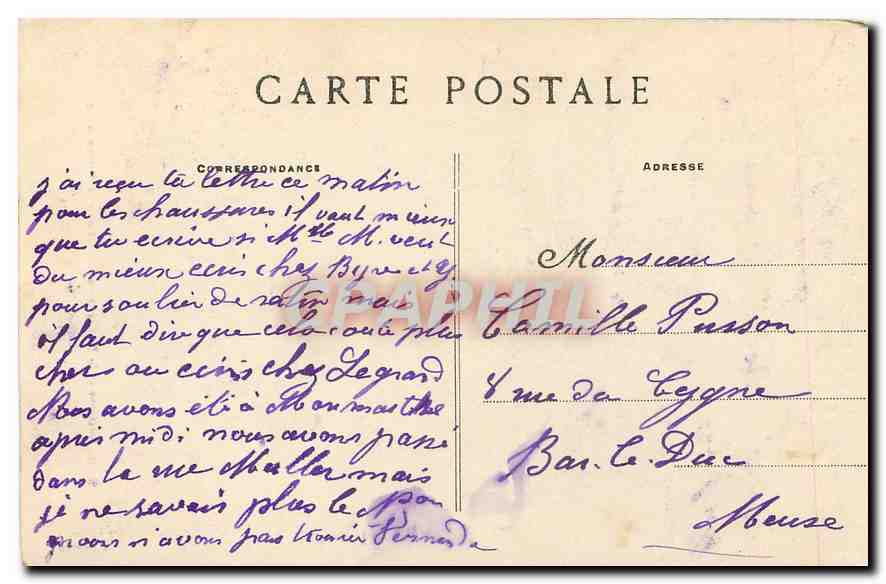 CARTE POSTALE
CORRESPONDANCE
ADRESSE
j'ai reçu ta lettre ce matin
pour les chaussures il vaut mieux
que tu ecrive si Mlle M. veut
du mieux chez Byre et
pour soulier de satin mais
il faut dire que cela coute plus
cher ou chez Legrand
Nous avons été à Monmartre
après midi nous avons passé
dans la rue Muller mais
je ne savais plus le
nous avons pas trouvé
Monsieur
Camille Pusson
8 rue du Cygne
Bar-le-Duc
Meuse
CPAPHIL